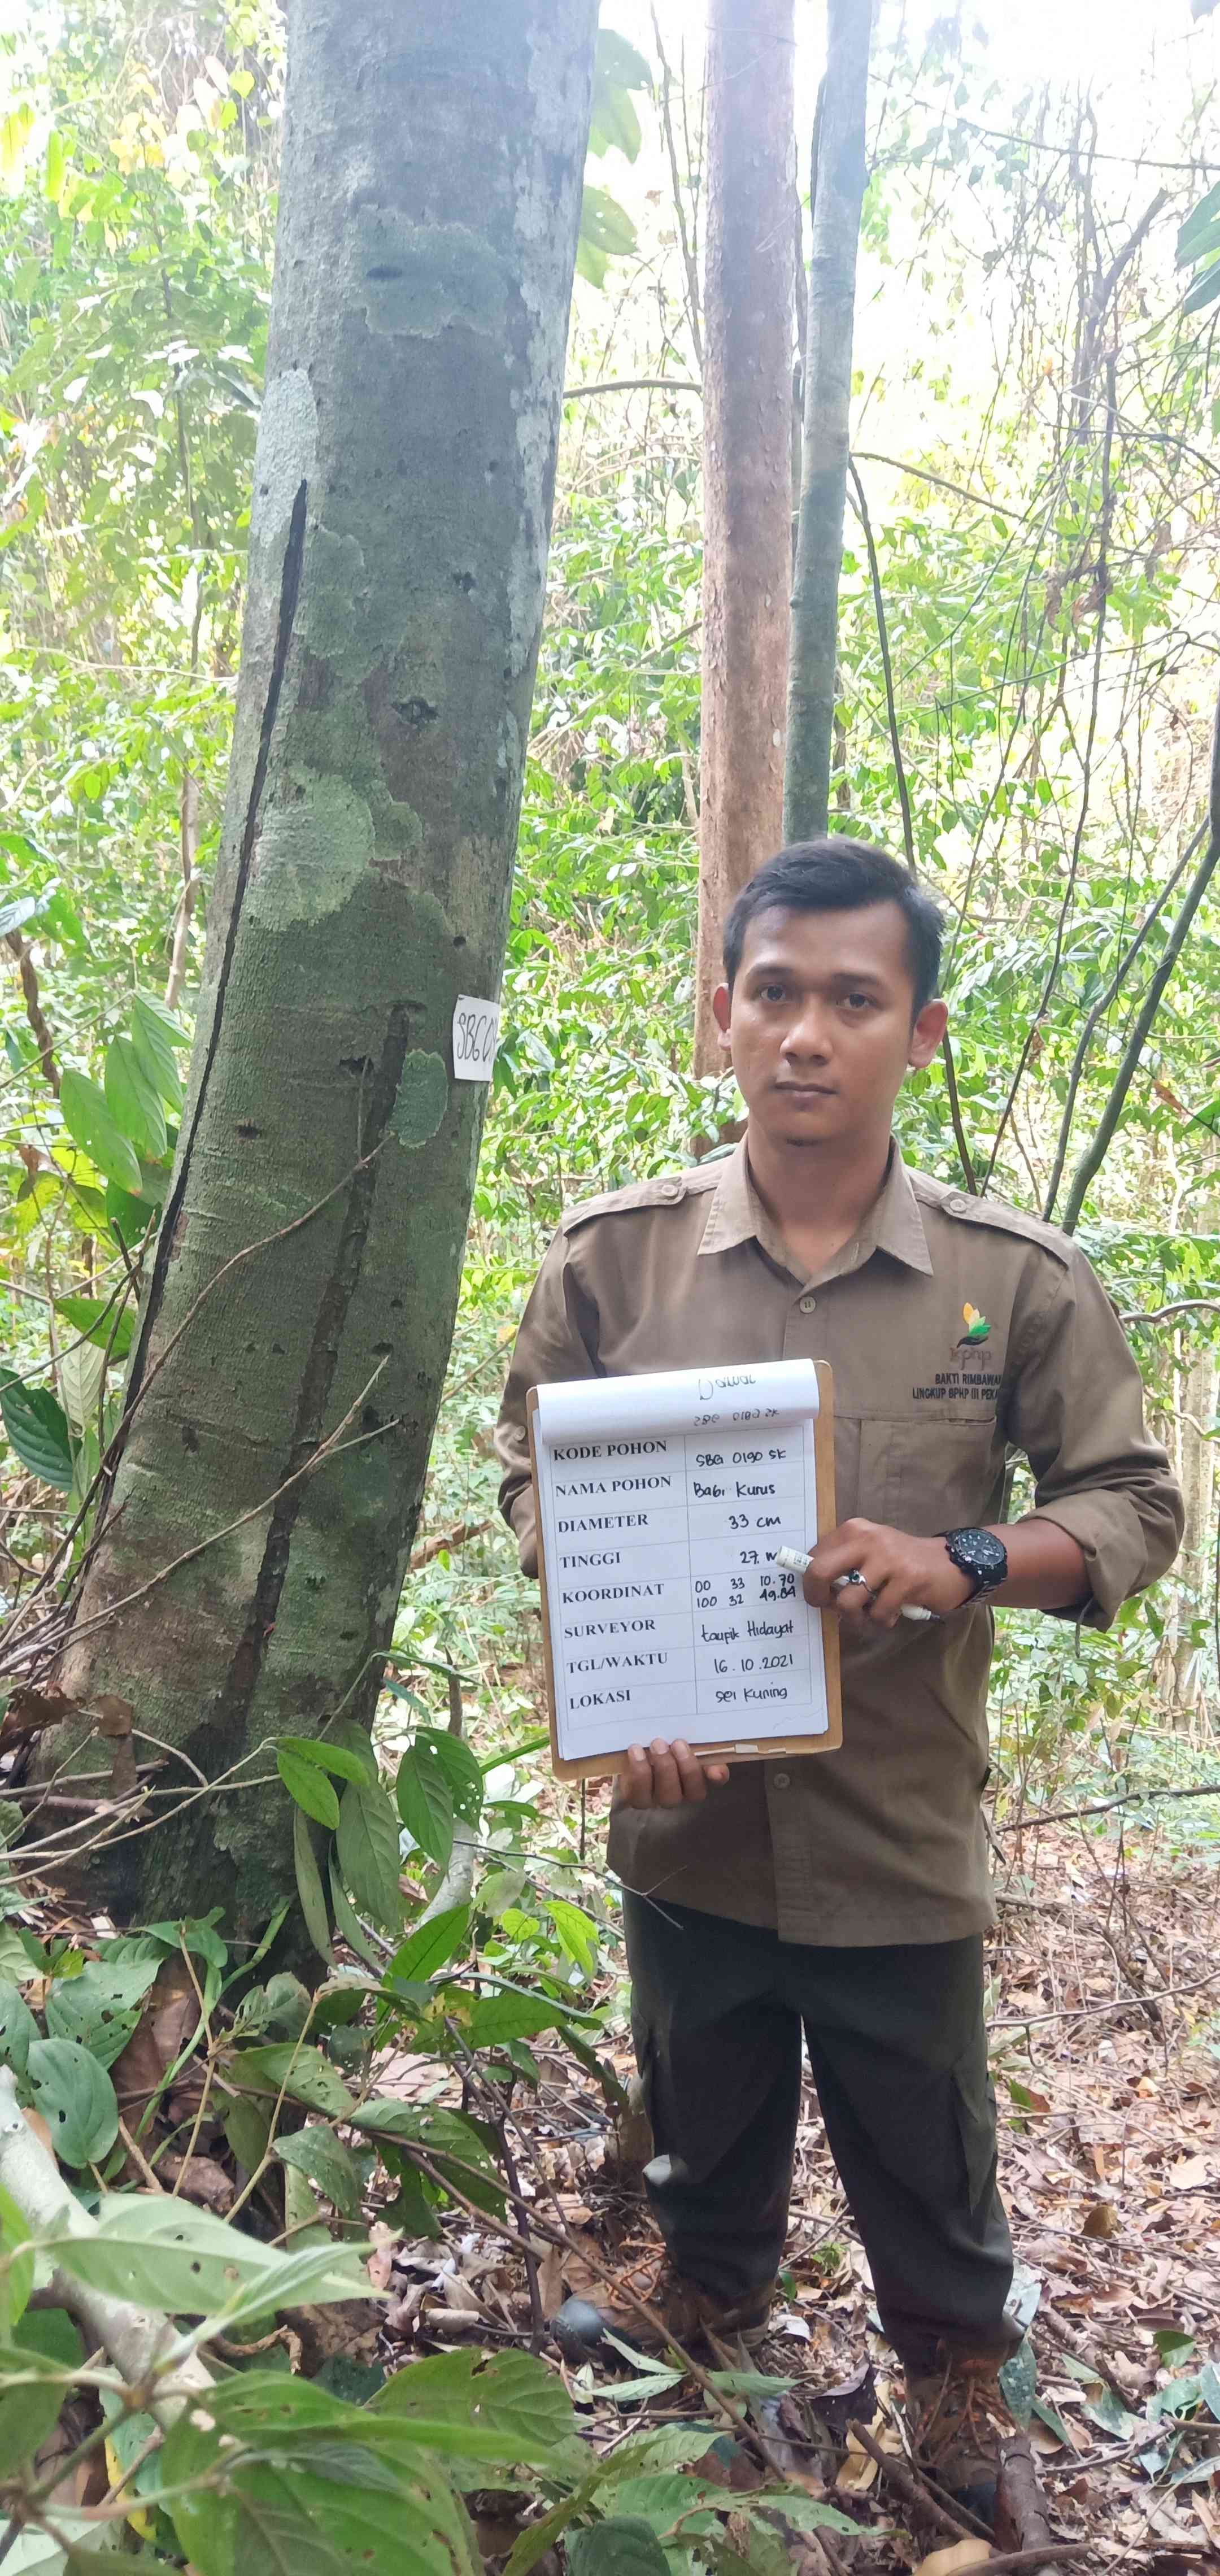 SBG 0
kphp
BAKTI RIMBAWAN
LINGKUP BPHP III PEKA
KODE POHON SBG 0190 SK
NAMA POHON Babi Kurus
DIAMETER 33 cm
TINGGI 27 m
KOORDINAT 00 33 10.70
100 32 49.84
SURVEYOR taupik Hidayat
TGL/WAKTU 16.10.2021
LOKASI Sei Kuning